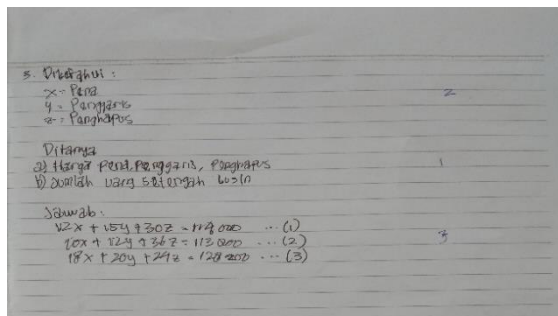 3. Diketahui :
x = Pena
y = Penggaris
z = Penghapus
2
Ditanya
a) Harga Pena, Penggaris, Penghapus
1
b) Jumlah uang setengah lusin
Jawab :
12x + 15y + 30z = 114 000 ... (1)
10x + 12y + 36z = 113 000 ... (2)
3
18x + 20y + 24z = 128 200 ... (3)